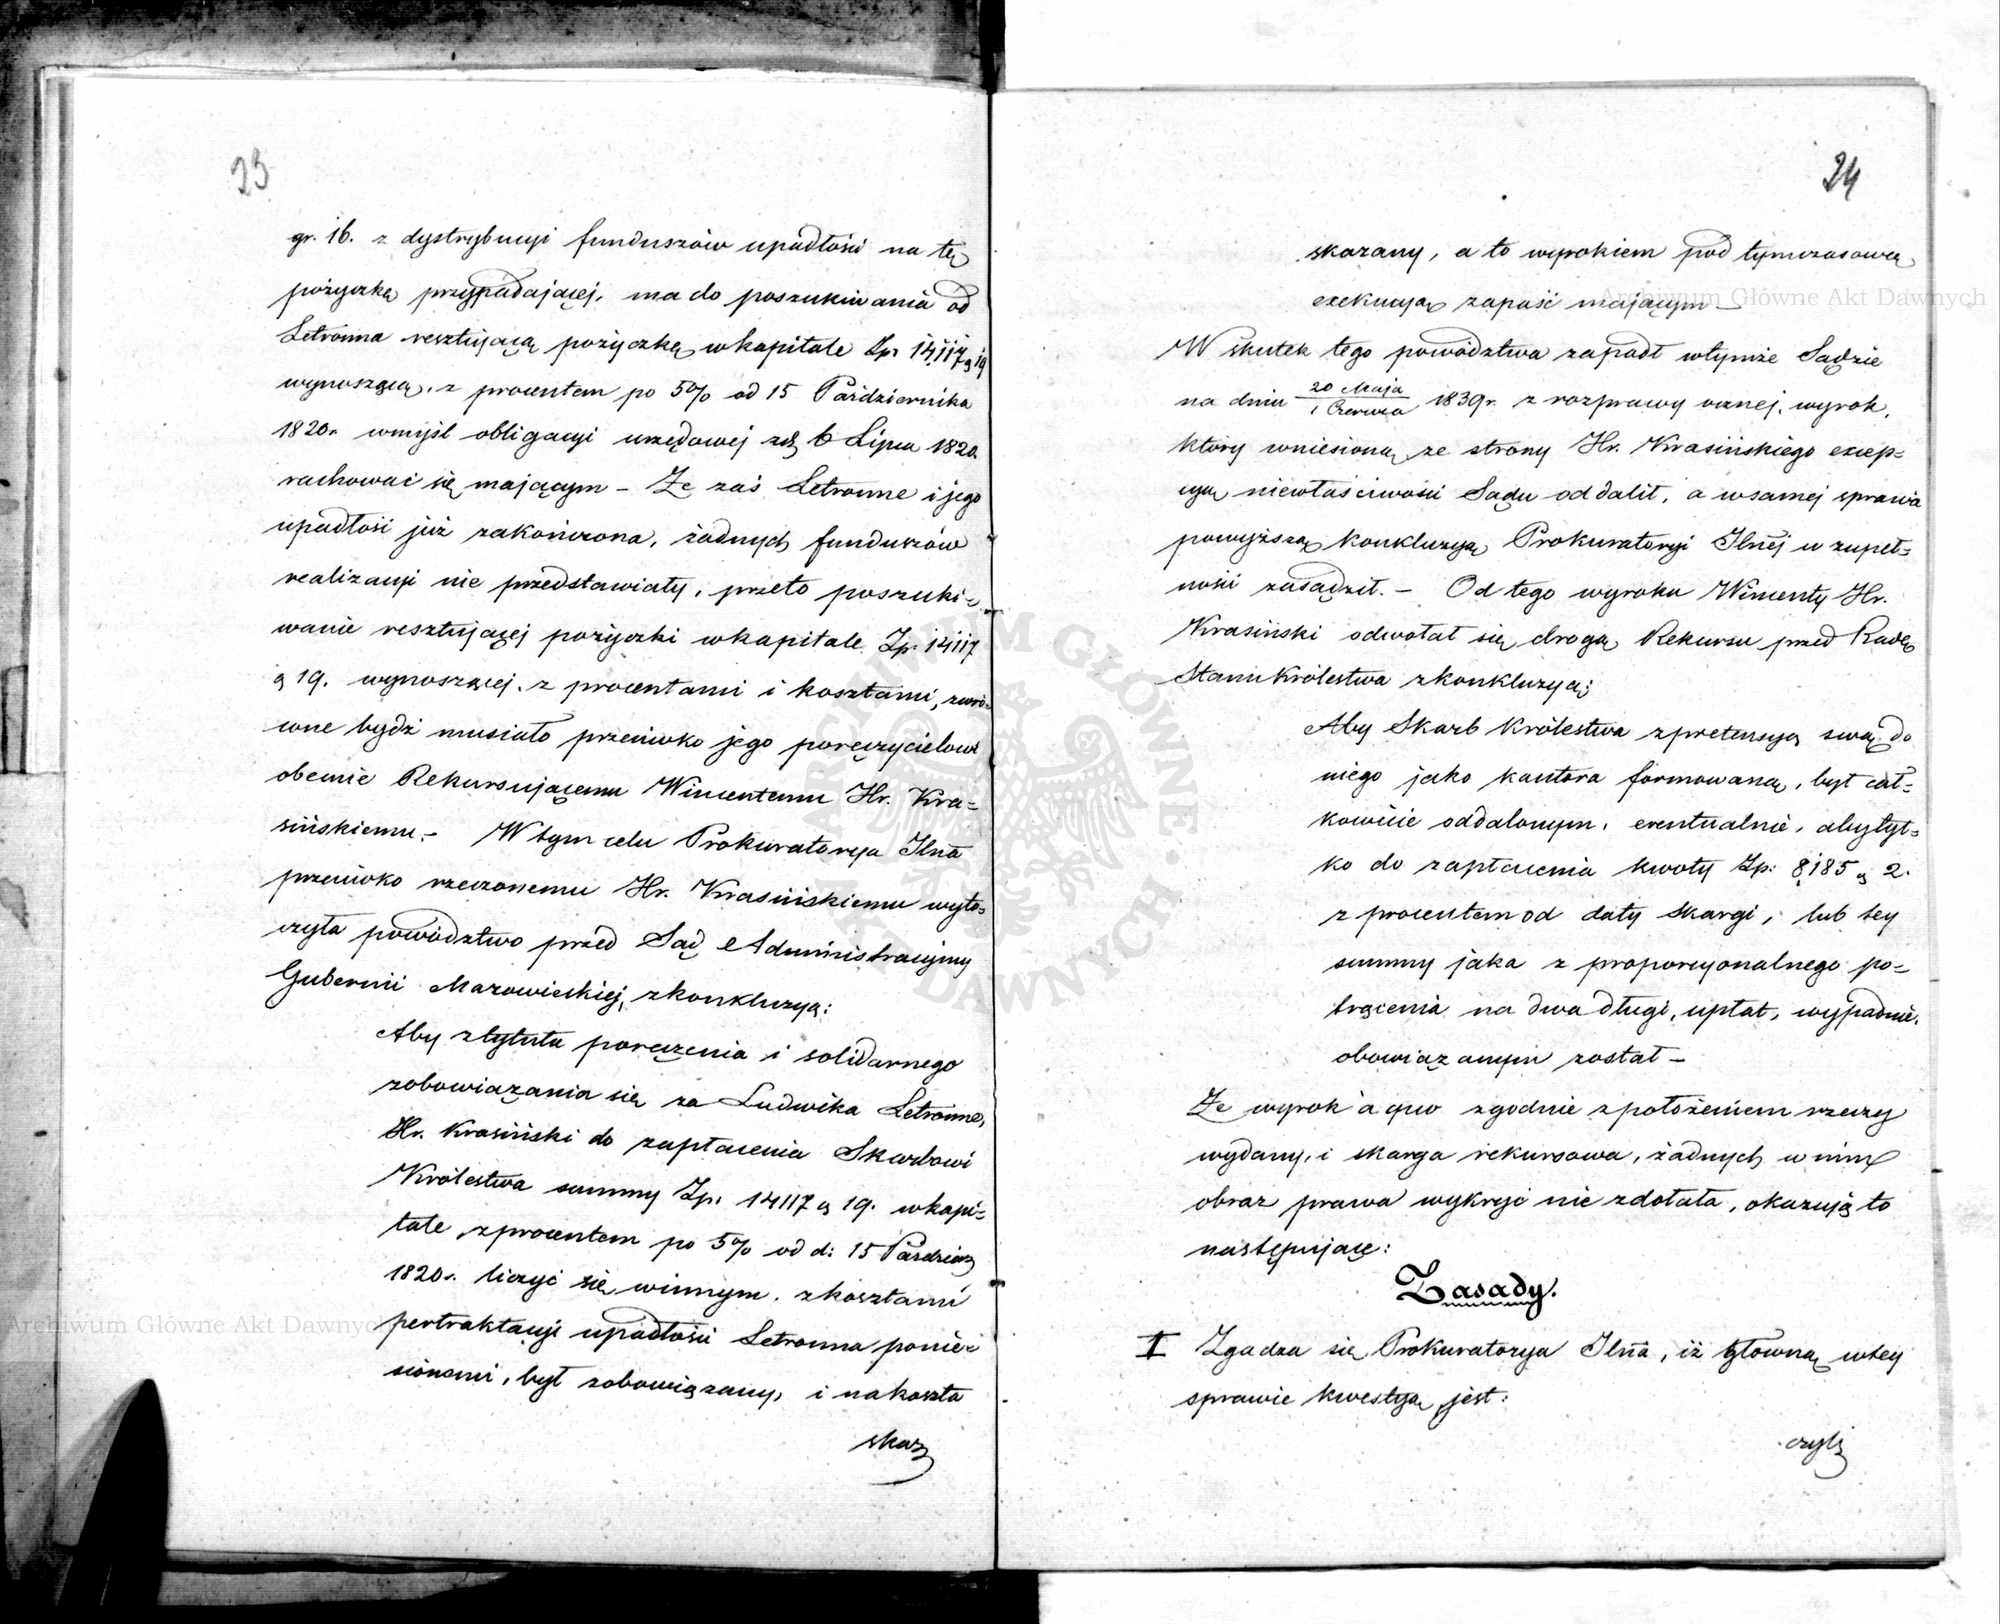 23
gr. 16. z dystrybucyi funduszów upadłości na tę
pożyczkę przypadającej, ma do poszukiwania od
Letronna resztującą pożyczkę w kapitale Zp. 14,117 g 19
wynoszącą, z procentem po 5% od 15 Października
1820r. wmyśl obligacyi urzędowej zd. 6 Lipca 1820.
rachować się mającym – Że zaś Letronne i jego
upadłość już zakończona, żadnych funduszów
realizacyi nie przedstawiały, przeto poszuki=
wanie resztującej pożyczki w kapitale Zp. 14,117
g 19. wynoszącej, z procentami i kosztami, zwró=
cone bydź musiało przeciwko jego poręczycielowi
obecnie Rekursującemu Wincentemu Hr. Kra=
sińskiemu.– W tym celu Prokuratorya Jlna
przeciwko rzeczonemu Hr. Krasińskiemu wyto=
czyła powództwo przed Sąd Administracyjny
Gubernii Mazowieckiej, zkonkluzyą:
Aby ztytułu poręczenia i solidarnego
zobowiązania się za Ludwika Letronne,
Hr. Krasiński do zapłacenia Skarbowi
Królestwa summy Zp. 14117 g 19. w kapi=
tale, zprocentem po 5% od d: 15 Paździer.
1820r. liczyć się winnym, zkosztami
pertraktacyi upadłości Letronna ponie=
sionemi, był zobowiązany, i na koszta
skaz
24
skazany, a to wyrokiem pod tymczasową
exekucyą zapaść mającym –
W skutek tego powództwa zapadł wtymże Sądzie
na dniu 20 Maja / 1 Czerwca 1839r. z rozprawy ocznej, wyrok,
który wniesioną ze strony Hr. Krasińskiego excep=
cyą niewłaściwości Sądu oddalił, a wsamej sprawie
powyższą konkluzyą Prokuratoryi Jlnéj w zupeł=
ności zasądził. – Od tego wyroku Wincenty Hr.
Krasiński odwołał się drogą Rekursu przed Radę
Stanu Królestwa zkonkluzyą:
Aby Skarb Królestwa zpretensyą swą do
niego jako kautora formowaną, był cał=
kowicie oddalonym, eventualnie, aby tyl=
ko do zapłacenia kwoty Zp: 8,185 g 2.
z procentem od daty skargi, lub tey
summy jaka z proporcyonalnego po=
trącenia na dwa długi, upłat, wypadnie,
obowiązanym został –
Że wyrok a quo zgodnie zpołożeniem rzeczy
wydany, i skarga rekursowa, żadnych w nim
obraz prawa wykryć nie zdołała, okazują to
następujące:
Zasady.
I Zgadza się Prokuratorya Jlna, iż główną wtey
sprawie kwestyą jest:
czyli
Archiwum Główne Akt Dawnych
Archiwum Główne Akt Dawnych
ARCHIWUM GŁÓWNE AKT DAWNYCH